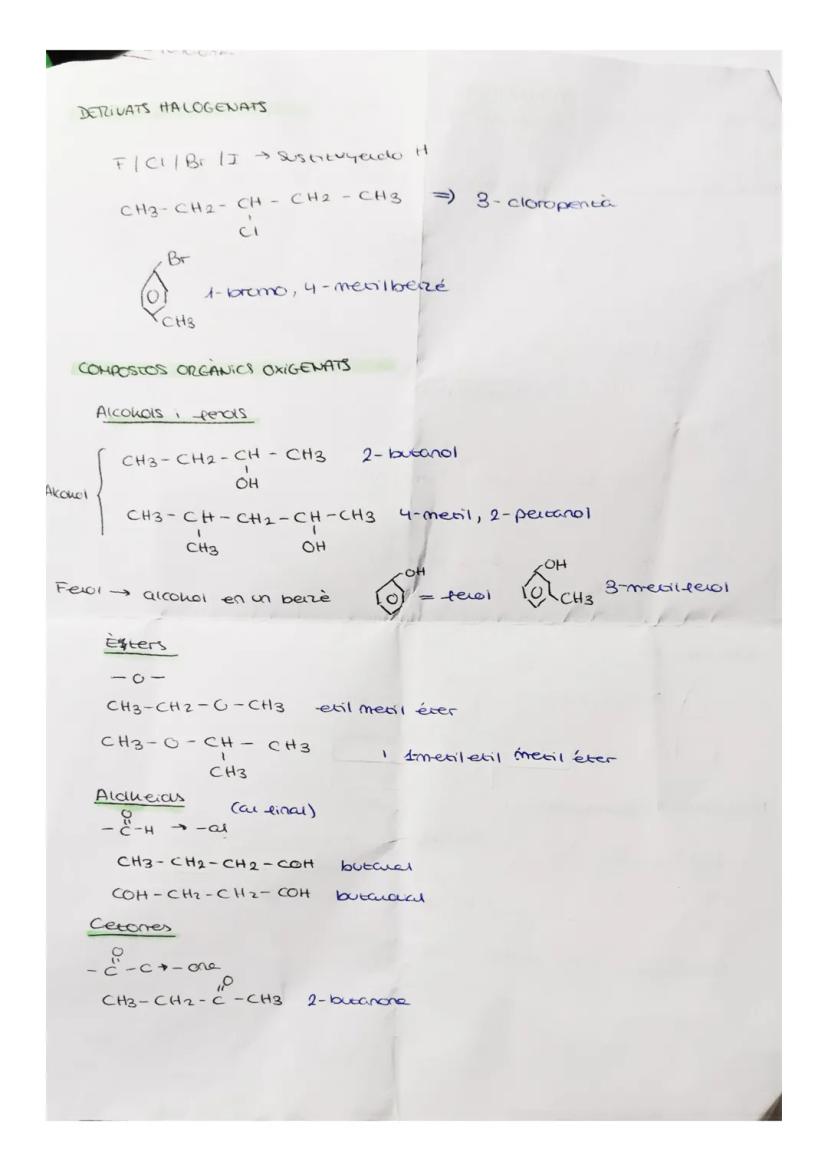 DERIVATS HALOGENATS
F / Cl / Br / I → Sustituyendo H
CH3 - CH2 - CH - CH2 - CH3 ⇒ 3-cloropentà
Cl
Br
1-bromo, 4-metilbenzé
CH3
COMPOSTOS ORGÀNICS OXIGENATS
Alcohols i fenols
CH3 - CH2 - CH - CH3 2-butanol
OH
Alcohol
CH3 - CH - CH2 - CH - CH3 4-metil, 2-pentanol
CH3 OH
Fenol → alcohol en un benzè OH = fenol OH CH3 3-metilfenol
Èters
- O -
CH3 - CH2 - O - CH3 etil metil éter
CH3 - O - CH - CH3 1metiletil metil éter
CH3
Aldheids (al final)
O
- C - H → -al
CH3 - CH2 - CH2 - COH butanal
COH - CH2 - CH2 - COH butanodial
Cetones
O
- C - C → - one
O
CH3 - CH2 - C - CH3 2-butanone